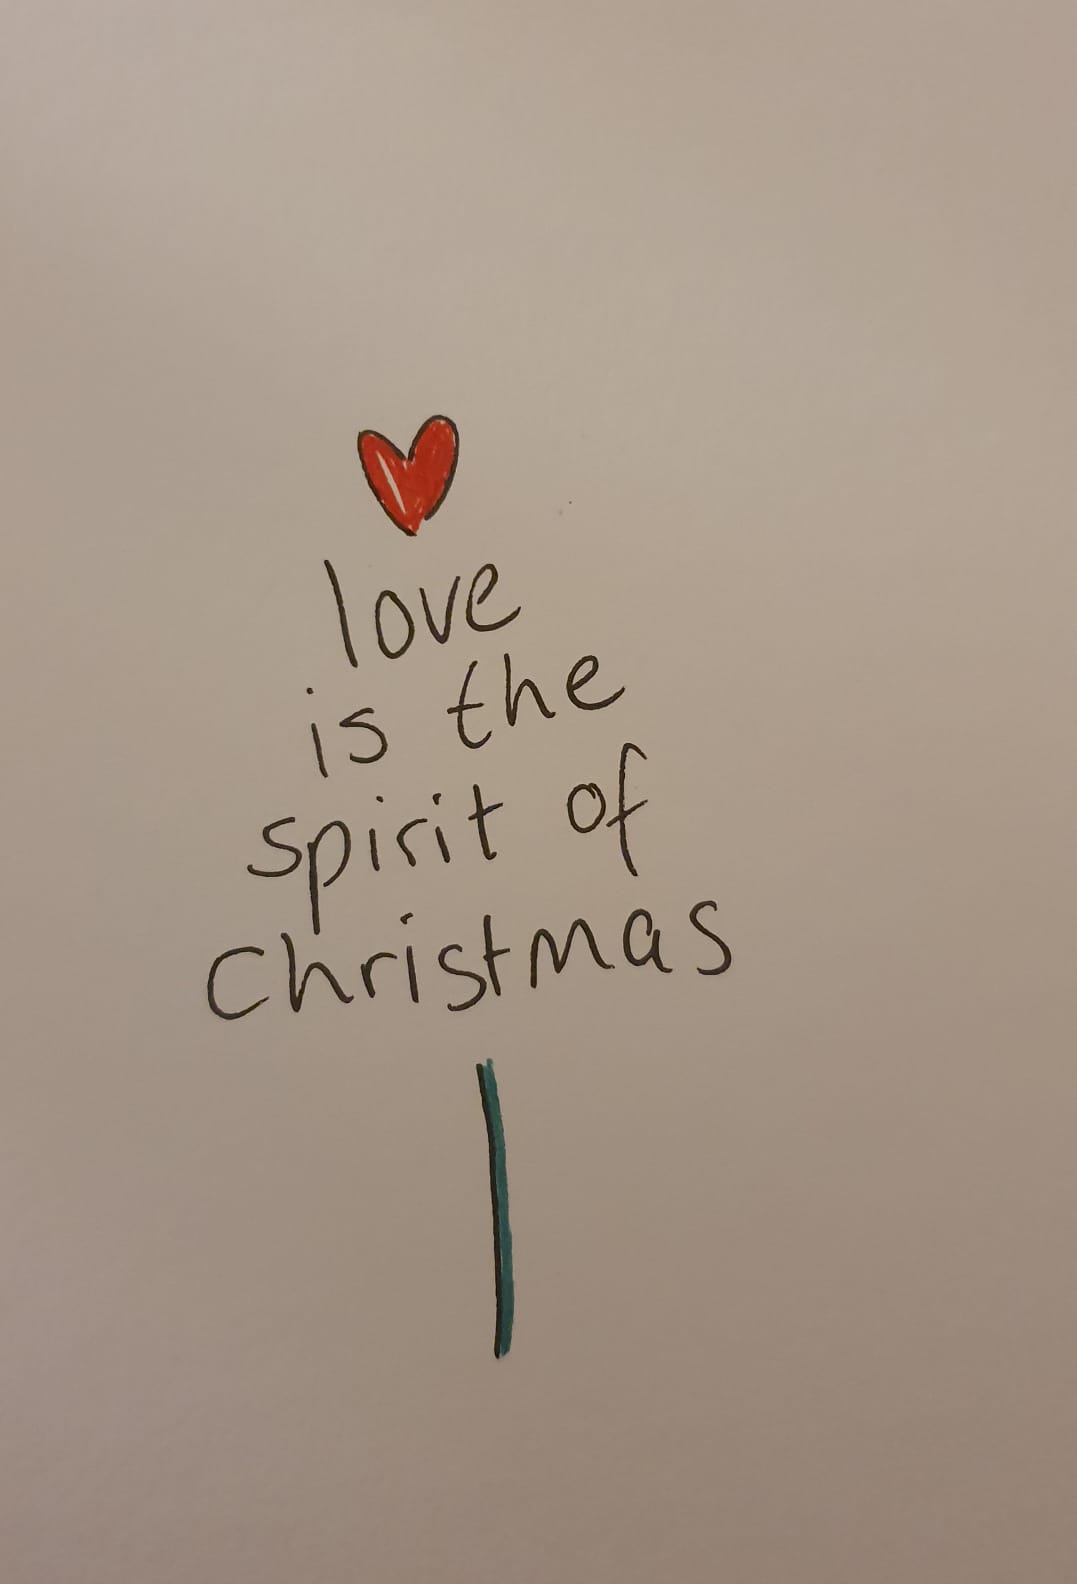 love
is the
spirit of
Christmas